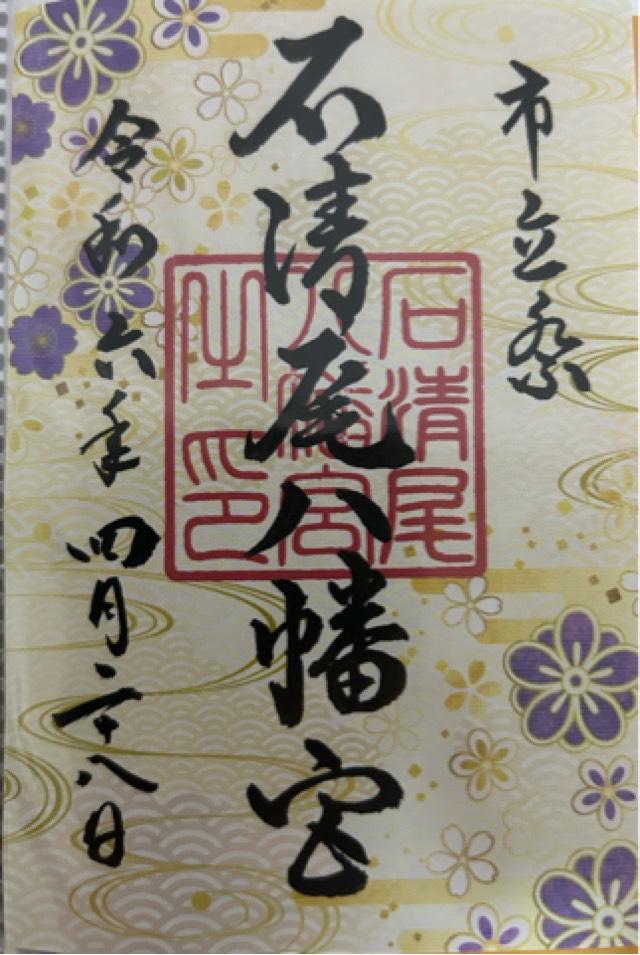 市立祭
石清尾八幡宮
令和六年四月二十八日
石清尾
八幡宮
之印